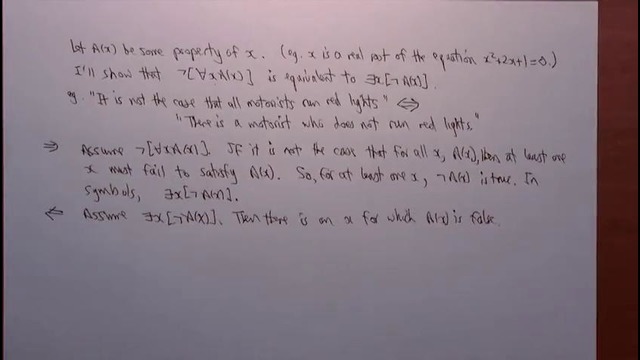 Let A(x) be some property of x. (eg. x is a real root of the equation x²+2x+1=0.)
I'll show that ¬[∀x A(x)] is equivalent to ∃x[¬A(x)].
eg. "It is not the case that all motorists run red lights" ⇔
"There is a motorist who does not run red lights."
⇒ Assume ¬[∀x A(x)]. If it is not the case that for all x, A(x), then at least one
x must fail to satisfy A(x). So, for at least one x, ¬A(x) is true. In
symbols, ∃x[¬A(x)].
⇐ Assume ∃x[¬A(x)]. Then there is an x for which A(x) is false.